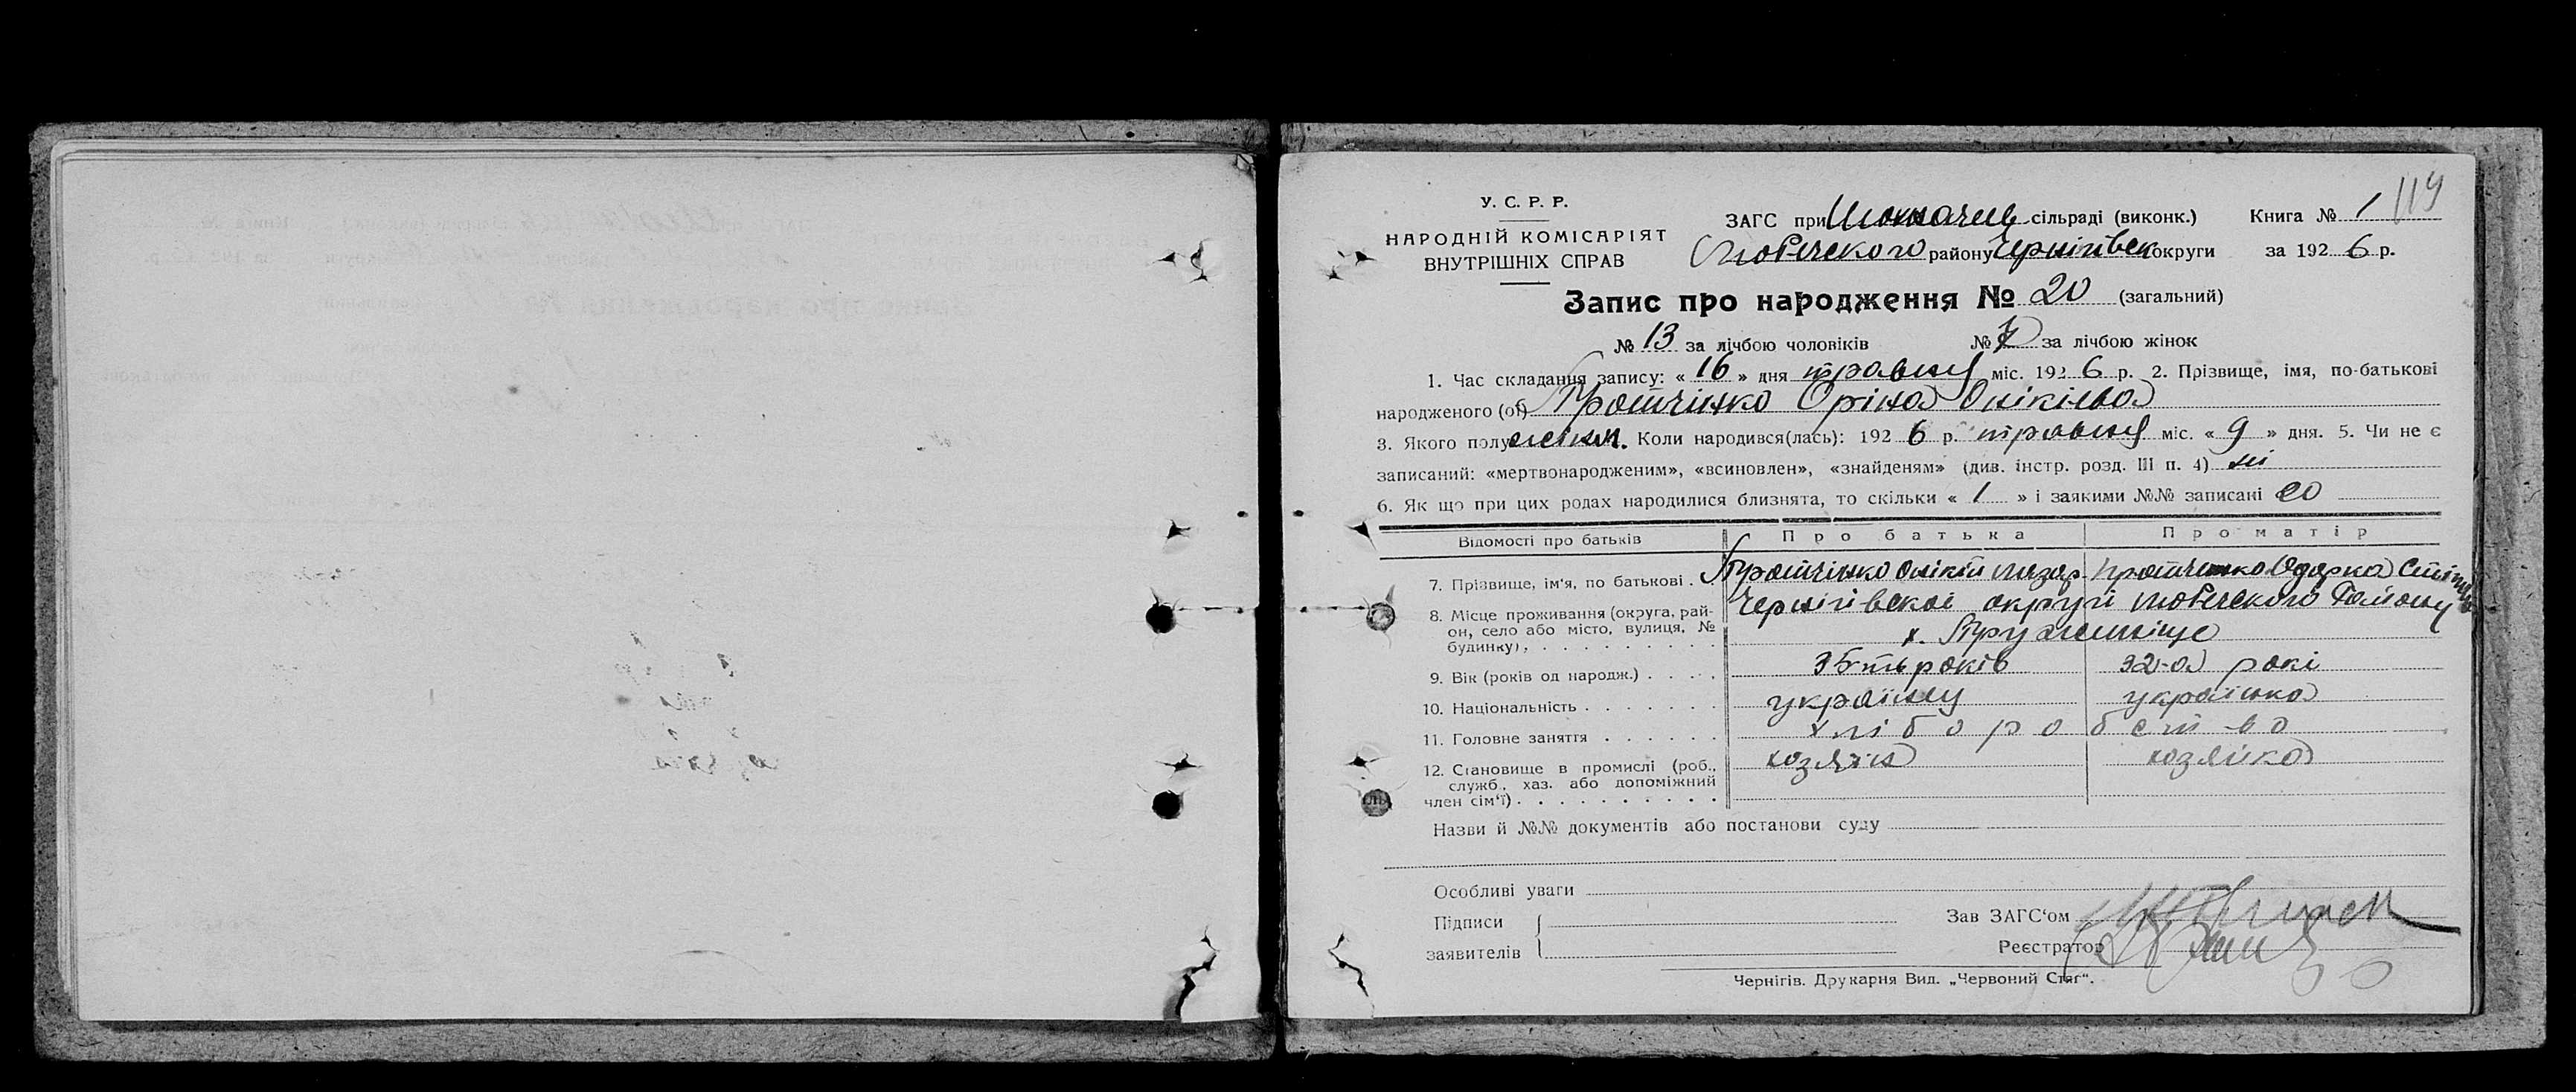 119
У. С. Р. Р.
НАРОДНІЙ КОМІСАРІЯТ
ВНУТРІШНІХ СПРАВ
ЗАГС при сільраді (виконк.) Книга № 1
району Чернігівськ округи за 1926 р.
Запис про народження № 20 (загальний)
№ 13 за лічбою чоловіків № 7 за лічбою жінок
1. Час складання запису: « 16 » дня травня міс. 1926 р. 2. Прізвище, імя, по-батькові
народженого (ої) Оріна Онікієва
3. Якого полу жіноч. Коли народився(лась): 1926 р. травня міс. « 9 » дня. 5. Чи не є
записаний: «мертвонародженим», «всиновлен», «знайденям» (див. інстр. розд. III п. 4) ні
6. Як що при цих родах народилися близнята, то скільки « 1 » і заякими №№ записані 20
Відомості про батьків Про батька Про матір
7. Прізвище, ім'я, по батькові . Онікій Одарка
8. Місце проживання (округа, рай- Чернігівскоі округи району
он, село або місто, вулиця, № х.
будинку) . . . . . . . . . .
9. Вік (років од народж.) . . . . 35-ть років 32-а рокі
10. Національність . . . . . . . українц українка
11. Головне заняття . . . . . . хліборобство
12. Становище в промислі (роб., хозяїн хозяйка
служб., хаз. або допоміжний
член сім'ї) . . . . . . . . . .
Назви й №№ документів або постанови суду
Особливі уваги
Підписи Зав ЗАГС'ом
заявителів Реєстратор
Чернігів. Друкарня Вид. „Червоний Стяг“.